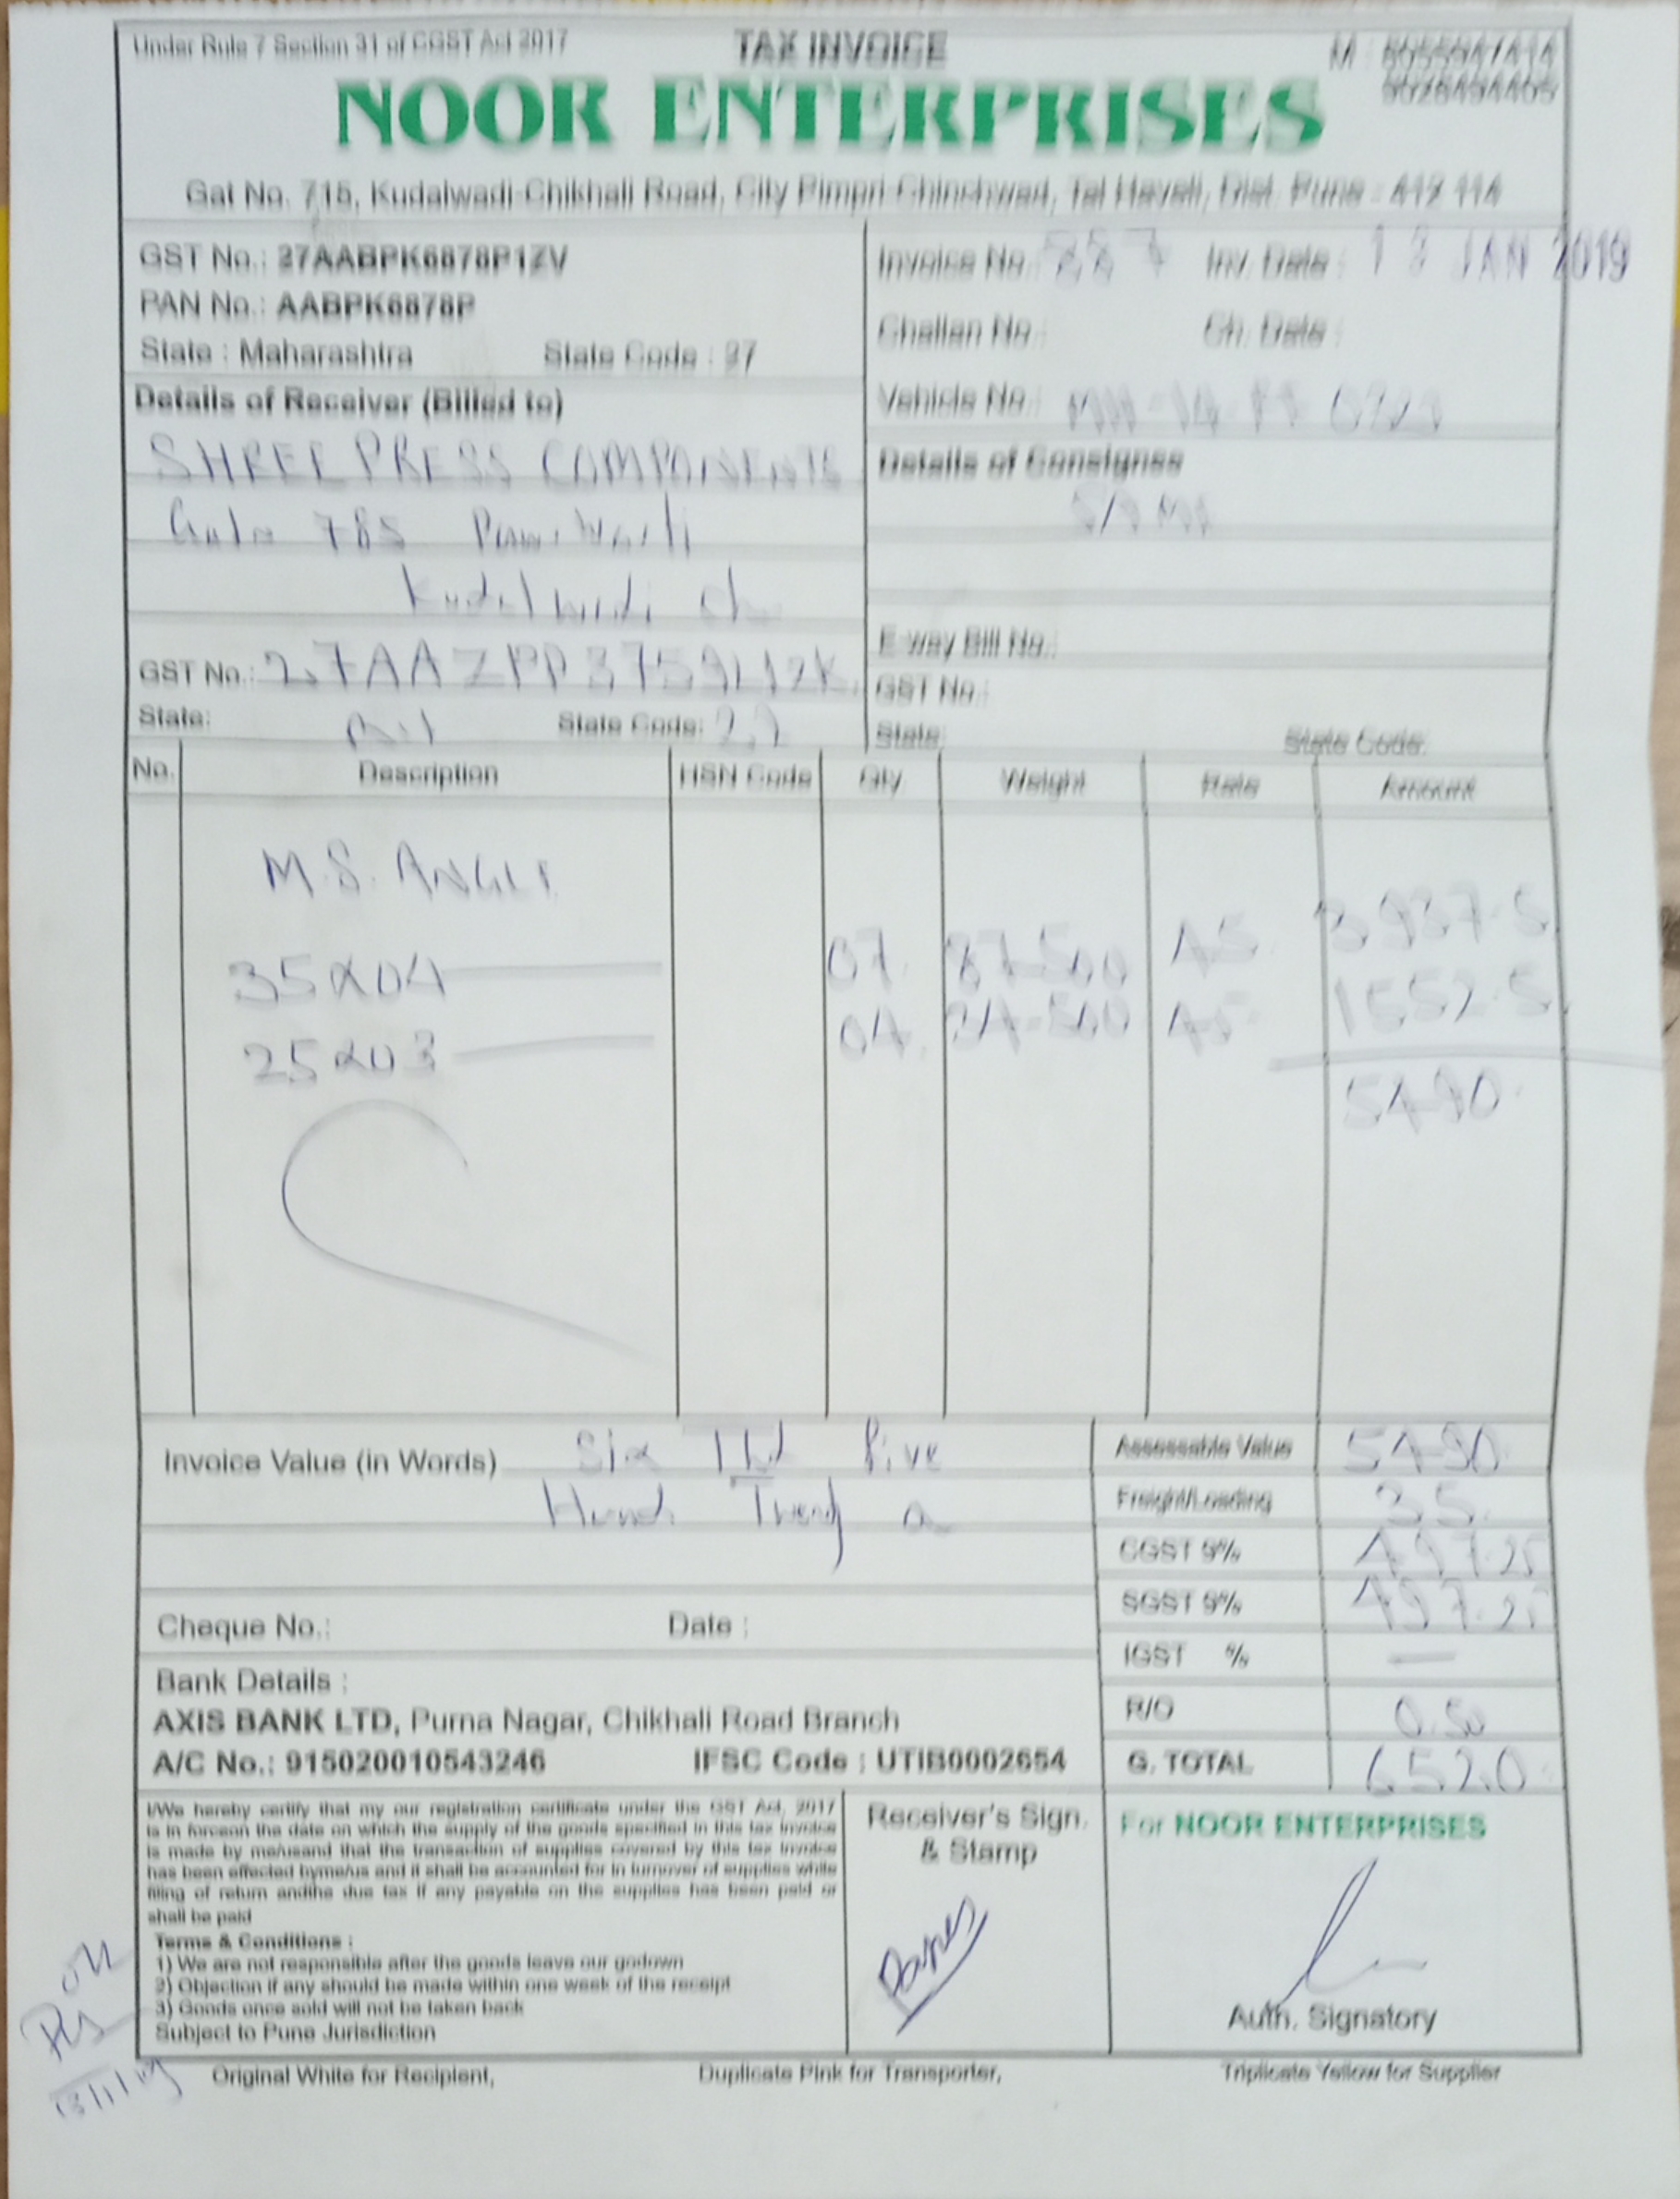 Under Rule 7 Section 31 of CGST Act 2017 TAX INVOICE M : 8055947414
9028494405
NOOR ENTERPRISES
Gat No. 715, Kudalwadi-Chikhali Road, City Pimpri-Chinchwad, Tal Haveli, Dist. Pune - 412 114
GST No.: 27AABPK6878P1ZV
PAN No.: AABPK6878P
State : Maharashtra State Code : 27
Invoice No. 887 Inv. Date : JAN 2019
Challan No.: Ch. Date :
Vehicle No.: MH-14
Details of Receiver (Billed to)
SHREE PRESS COMPONENTS
785
Kudalwadi
GST No.: 27AAZPP3759L1ZK
State: State Code: 27
Details of Consignee
E-way Bill No.:
GST No.:
State: State Code:
No. Description HSN Code Qty. Weight Rate Amount
M.S. ANGLE
35x04 07 87-500 45 3937.5
25x03 04 34-500 45 1552.5
5490
Invoice Value (in Words) Six Thd Five
Hund. Twenty
Assessable Value 5490
Freight/Loading 35
CGST 9% 497.25
SGST 9% 497.25
IGST % —
R/O 0.50
G. TOTAL 6520
Cheque No.: Date :
Bank Details :
AXIS BANK LTD, Purna Nagar, Chikhali Road Branch
A/C No.: 915020010543246 IFSC Code : UTIB0002654
I/We hereby certify that my our registration certificate under the GST Act, 2017
is in forceon the date on which the supply of the goods specified in this tax invoice
is made by me/usand that the transaction of supplies covered by this tax invoice
has been effected byme/us and it shall be accounted for in turnover of supplies while
filing of return andthe due tax if any payable on the supplies has been paid or
shall be paid
Terms & Conditions :
1) We are not responsible after the goods leave our godown
2) Objection if any should be made within one week of the receipt
3) Goods once sold will not be taken back
Subject to Pune Jurisdiction
Receiver's Sign.
& Stamp
For NOOR ENTERPRISES
Auth. Signatory
OK
13/1/19
Original White for Recipient, Duplicate Pink for Transporter, Triplicate Yellow for Supplier